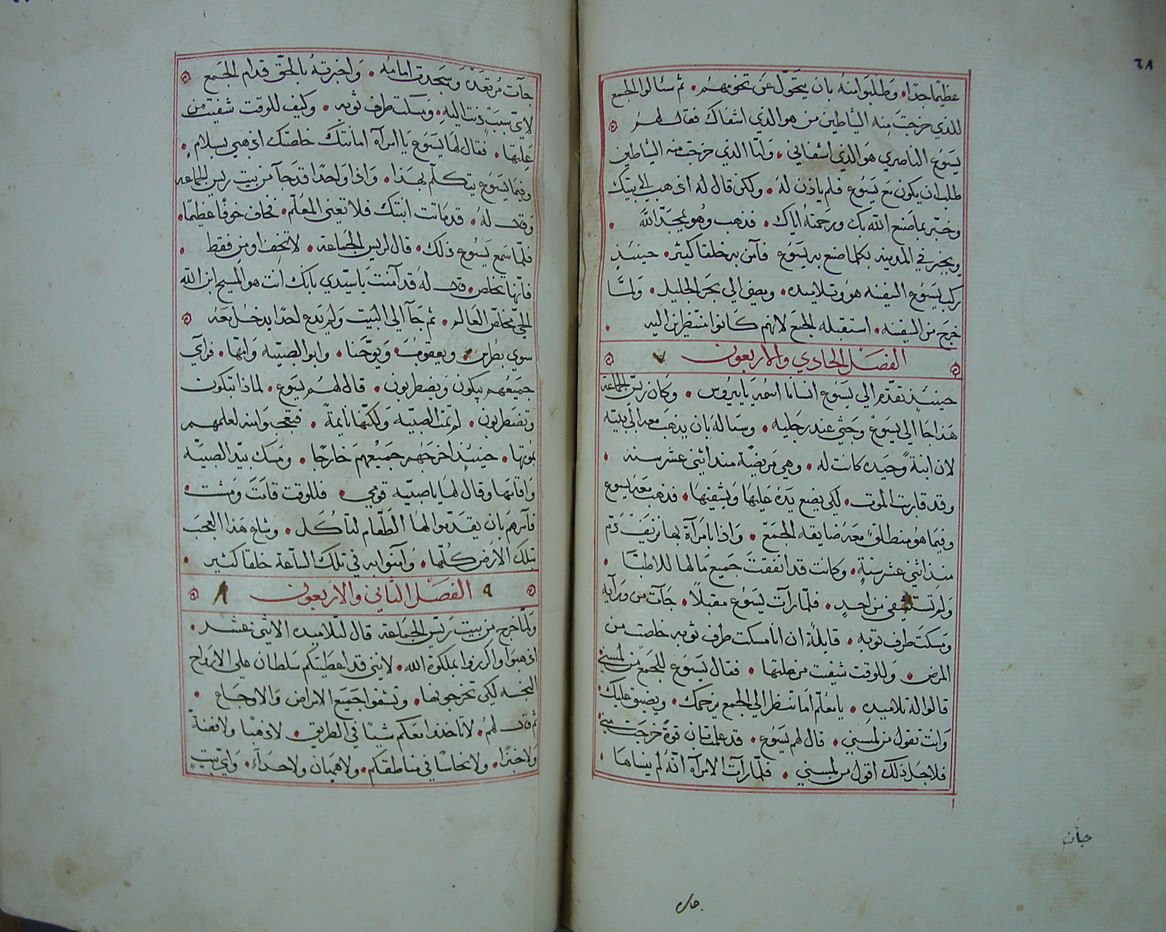 ٦٨
عظيما جدا • وطلبوا منه بان يتحول عن تخومهم • ثم سئالوا الجمع
للذي خرجت منه الشياطين من هو الذي اشفاك فقال لهم
يسوع الناصري هو الذي اشفاني • ولما الذي خرجت منه الشياطين
طلب ان يكون مع يسوع فلم ياذن له • ولكن قال له اذهب الى بيتك
وخبر بما صنع الله بك ورحمته اياك • فذهب وهو يمجد الله
ويخبر في المدينه بكلما صنع به يسوع فآمن به خلقا كثير • حينيذ
ركب يسوع السفينه هو وتلاميده • ومضى الى بحر الجليل • ولما
خرج من السفينه • استقبله الجمع لانهم كانوا منتظرين اليه
الفصل الحادي والاربعون
حينيذ تقدم الى يسوع انسانا اسمه يايروس • وكان ريس الجماعه
هذا جا الى يسوع وجثى عند رجليه • وساله بان يذهب معه الى بيته
لان ابنة وحيده كانت له • وهي مريضة منذ اثنى عشر سنه
وقد قاربت الموت • لكي يضع يده عليها ويشفيها • فذهب معه يسوع
وفيما هو منطلق معه ضايقه الجمع • واذا بامرآة بها نزيف دم
منذ اثنى عشر سنة • وكانت قد انفقت جميع مالها للاطبا
ولم تستطيع تشفى من احد • فلما رات يسوع مقبلا • جآت من ورآيه
ومسكت طرف ثوبه • قايلة ان انا مسكت طرف ثوبه خلصت من
المرض • وللوقت شفيت من علتها • فقال يسوع للجمع من لمسني
قالوا له تلاميده • يا معلم اما تنظر الى الجمع يزحمك • ويضيق عليك
وانت تقول من لمسني • قال لهم يسوع • قد علمت ان قوة خرجت مني
فلاجل ذلك اقول من لمسني • فلما رآت الامرآة انه لم ينساها
جآت
جآت مرتعدة وسجدت امامه • واخبرته بالحق قدام الجمع
لاي سبب دنت اليه • ومسكت طرف ثوبه • وكيف للوقت شفيت من
علتها • فقال لها يسوع يا امرآة امانتك خلصتك اذهبي بسلام •
وفيما يسوع يتكلم بهذا • واذا واحدا قد جآ من بيت ريس الجماعه
وقال له • قد ماتت ابنتك فلا تعنى المعلم • فخاف خوفا عظيما •
فلما سمع يسوع ذلك • قال لريس الجماعة • لا تخف اومن فقط
فانها تخلص • قال له قد آمنت يا سيدي بانك انت هو المسيح ابن الله
الحي مخلص العالم • ثم جآ الى البيت ولم يدع احدا يدخل معه
سوى بطرس • ويعقوب • ويوحنا • وابو الصبيه وامها • فرآى
جميعهم يبكون ويضطربون • قال لهم يسوع • لماذا تبكون
وتضطربون • لم تمت الصبيه ولكنها نايمة • فضحكوا منه لعلمهم
بموتها • حينيذ اخرجهم جميعهم خارجا • ومسك بيد الصبيه
واقامها وقال لها يا صبيه قومي • فللوقت قامت ومشت
فامرهم بان يقدموا لها الطعام لتاكل • وشاع هذا العجب
بتلك الارض كلها • وآمنوا به في تلك الساعة خلقا كثير •
الفصل الثاني والاربعون
ولما خرج من بيت ريس الجماعة قال لتلاميده الاثنى عشر •
اذهبوا واكرزوا بملكوة الله • لانني قد اعطيتكم سلطان على الارواح
النجسه لكي تخرجوها • وتشفوا جميع الامراض والاوجاع •
ثم قال لهم • لا تاخذوا معكم شيئا في الطريق • لا ذهبا ولا فضة
ولا خبزا • ولا نحاسا في مناطقكم • ولا هميان ولا حذآء • واي بيت